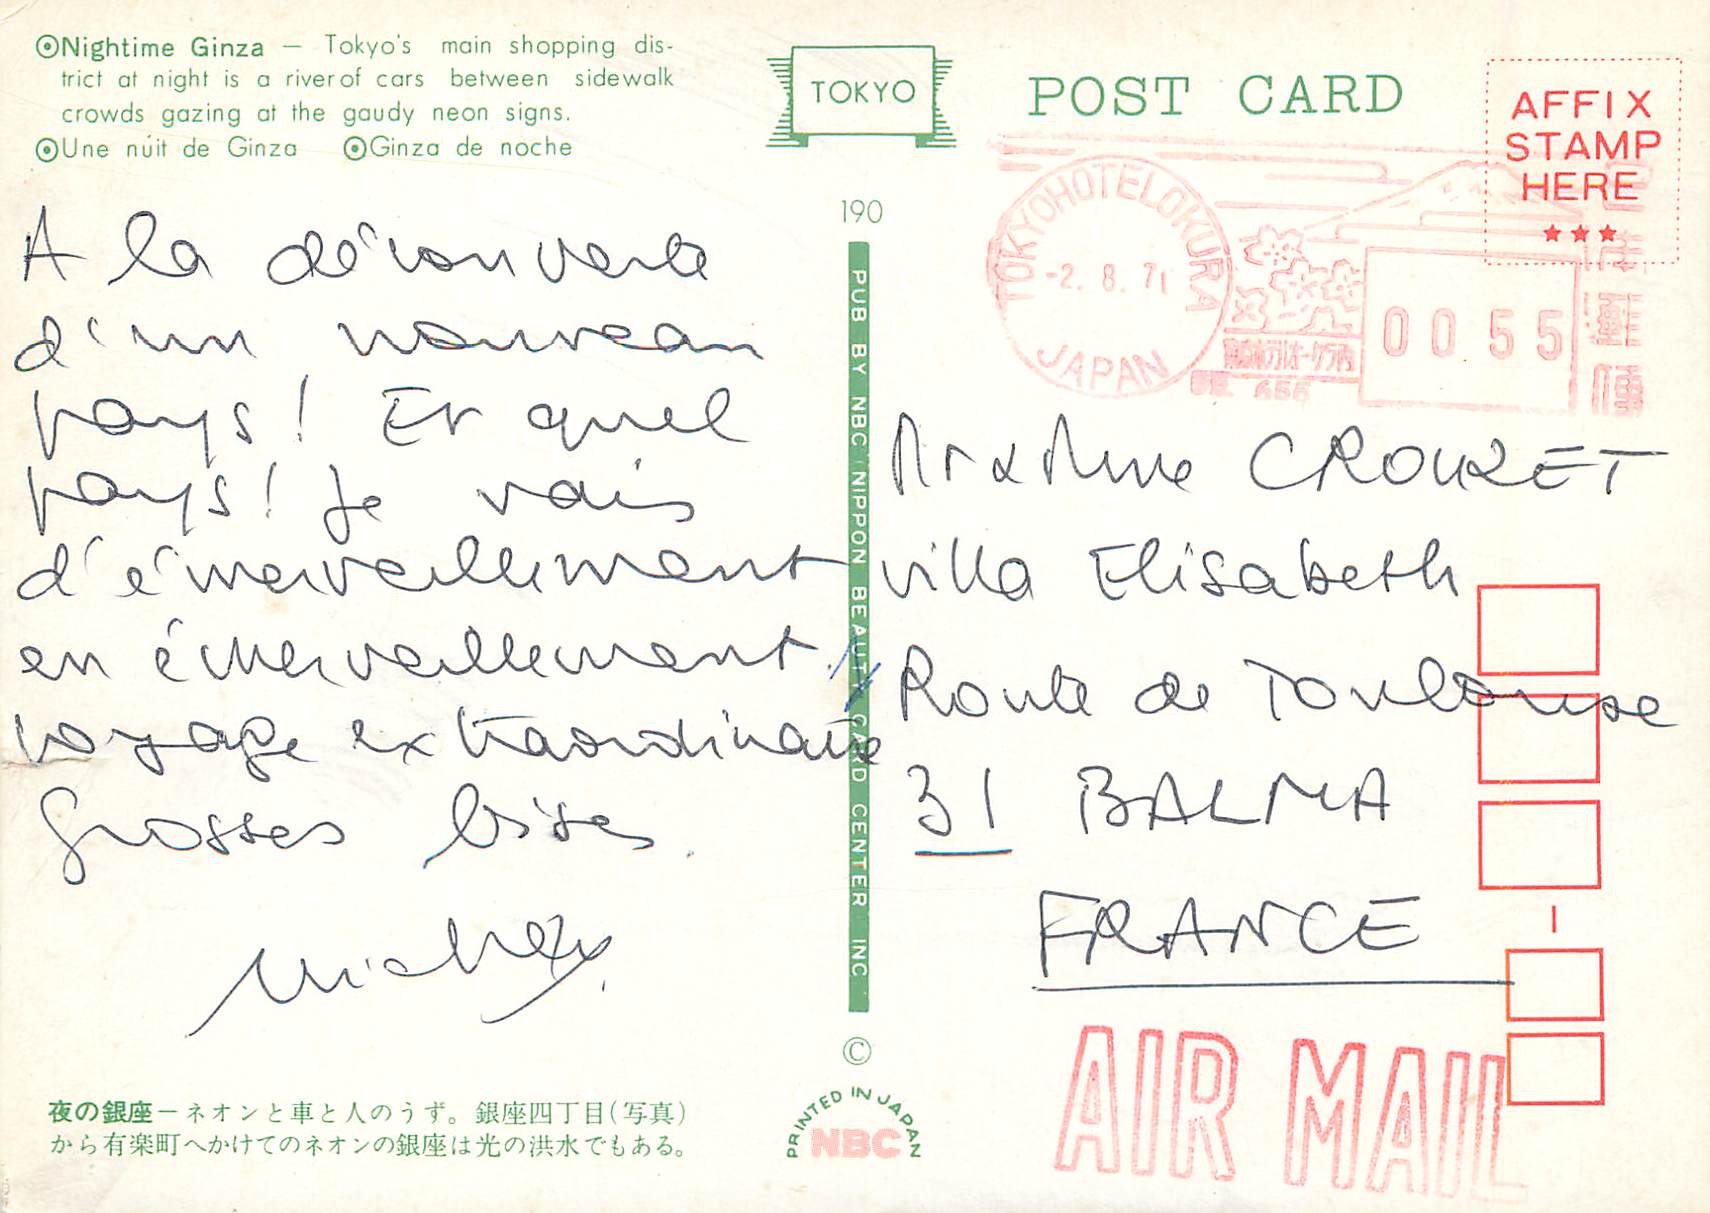 ◉Nightime Ginza — Tokyo's main shopping dis-
trict at night is a river of cars between sidewalk
crowds gazing at the gaudy neon signs.
◉Une núit de Ginza ◉Ginza de noche
TOKYO
POST CARD
AFFIX
STAMP
HERE
★★★
TOKYOHOTELOKURA
-2. 8. 71
JAPAN
0055
656
190
PUB BY NBC NIPPON BEAUTY CARD CENTER INC
A la découverte
d'un nouveau
pays! Et quel
pays! Je vais
d'émerveillement
en émerveillement
voyage extraordinaire
Grosses bises.
Madame CROUZET
villa Elisabeth
Route de Toulouse
31 BALMA
FRANCE
AIR MAIL
夜の銀座－ネオンと車と人のうず。銀座四丁目(写真)
から有楽町へかけてのネオンの銀座は光の洪水でもある。
©
PRINTED IN JAPAN
NBC